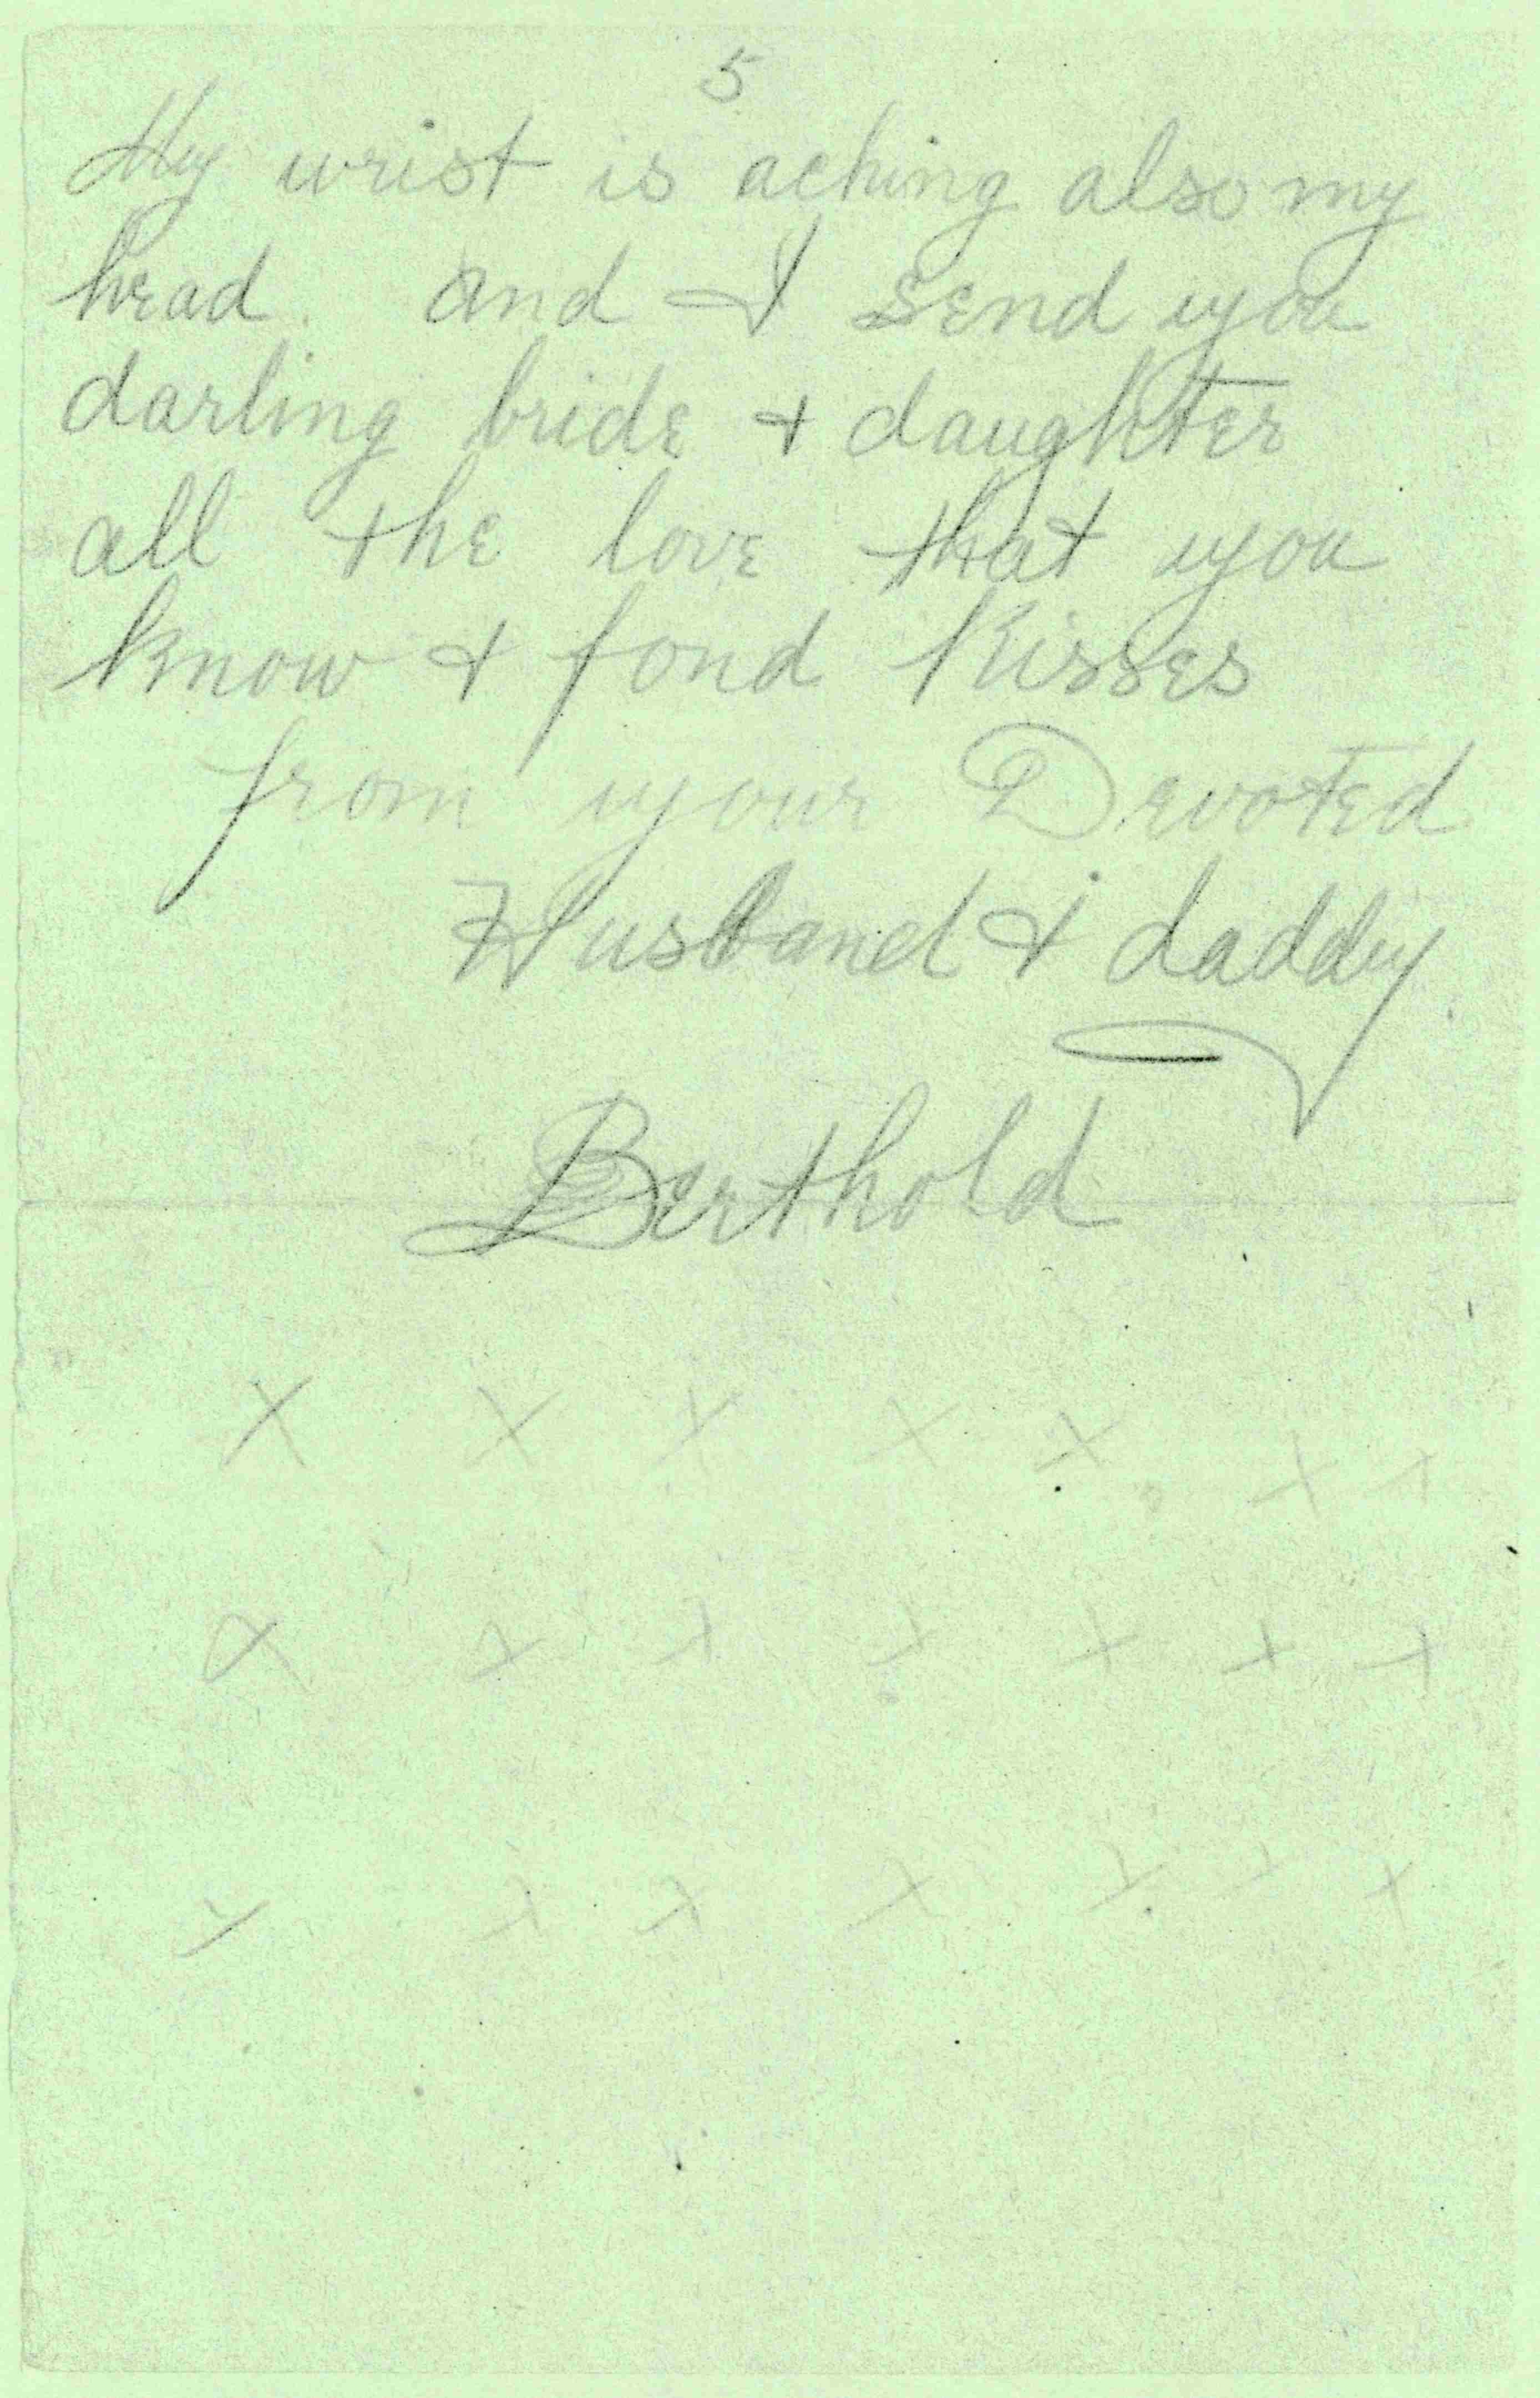 5
My wrist is aching also my
head. And I send you
darling bride & daughter
all the love that you
know & fond kisses
from your Devoted
Husband & daddy.
Berthold
X X X X X X X
X X X X X X X
X X X X X X X